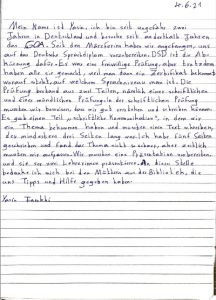 20.6.21
Mein Name ist Yasir, ich bin seit ungefähr zwei
Jahren in Deutschland und besuche seit anderthalb Jahren
den GOA. Seit den Winterferien haben wir angefangen, uns
auf das Deutsche Sprachdiplom vorzubereiten. DSD ist die Abkürzung
dafür. Es war eine freiwillige Prüfung, aber trotzdem
haben alle sie gemacht, weil man dann ein Zertifikat bekommt
worauf steht, auf welchem Sprachniveau man ist. Die
Prüfung bestand aus zwei Teilen, nämlich einer schriftlichen
und einer mündlichen Prüfung. In der schriftlichen Prüfung
mussten wir beweisen, dass wir gut verstehen und schreiben können.
Es gab einen Teil „schriftliche Kommunikation", in dem wir
ein Thema bekommen haben und darüber einen Text schreiben,
der mindestens drei Seiten lang war. Ich habe fünf Seiten
geschrieben und fand das Thema nicht so schwer, aber zeitlich
mussten wir aufpassen. Wir mussten eine Präsentation vorbereiten,
und sie vor zwei Lehrerinnen präsentieren. An dieser Stelle
bedanke ich mich bei den Müttern aus der Bibliothek, die
uns Tipps und Hilfe gegeben haben.
Yasir